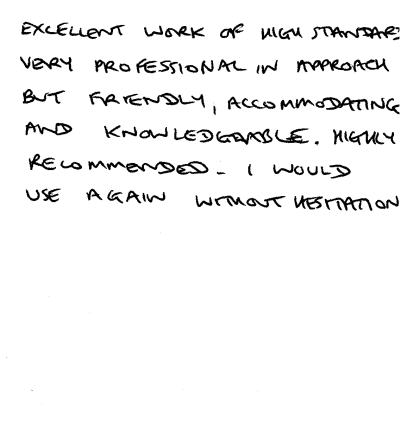 EXCELLENT WORK OF HIGH STANDARD
VERY PROFESSIONAL IN APPROACH
BUT FRIENDLY, ACCOMMODATING
AND KNOWLEDGEABLE. HIGHLY
RECOMMENDED - I WOULD
USE AGAIN WITHOUT HESITATION